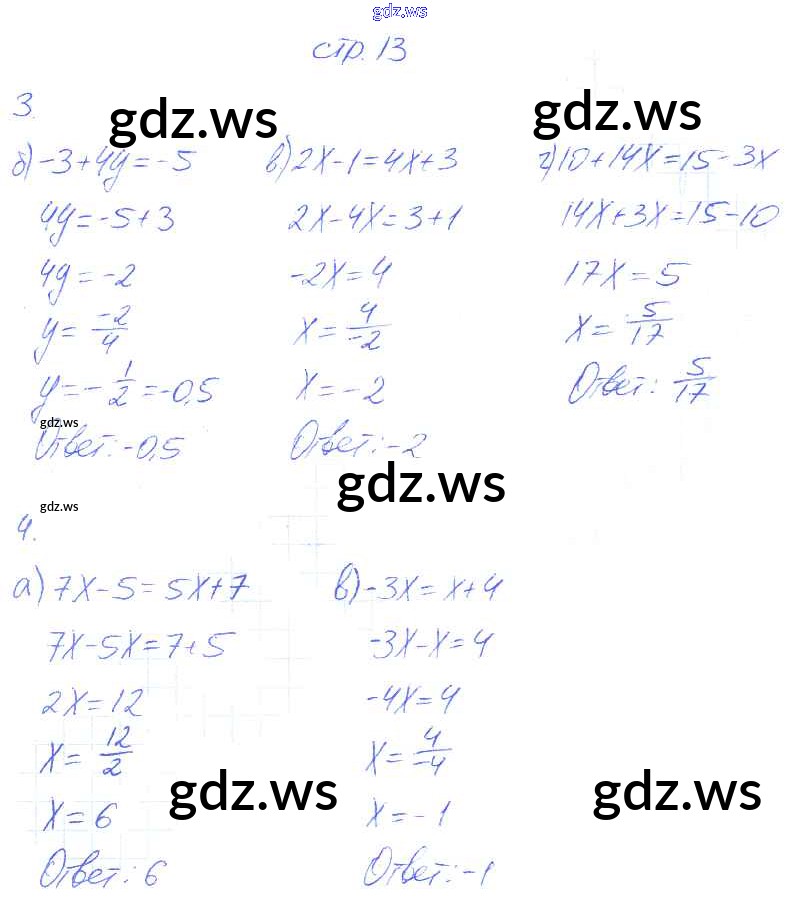 gdz.ws
стр. 13
gdz.ws
gdz.ws
3.
б) -3+4y=-5
4y=-5+3
4y=-2
y= -2/4
y=-1/2=-0,5
gdz.ws
Ответ: -0,5
в) 2x-1=4x+3
2x-4x=3+1
-2x=4
x= 4/-2
x=-2
Ответ: -2
г) 10+14x=15-3x
14x+3x=15-10
17x=5
x= 5/17
Ответ: 5/17
gdz.ws
gdz.ws
4.
а) 7x-5=5x+7
7x-5x=7+5
2x=12
x= 12/2
x=6
Ответ: 6
в) -3x=x+4
-3x-x=4
-4x=4
x= 4/-4
x=-1
Ответ: -1
gdz.ws
gdz.ws